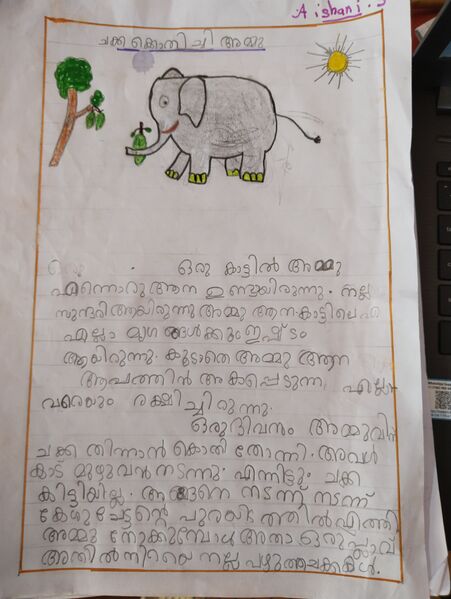 Aishani.S
ചക്ക കൊതിച്ചി അമ്മു
ഒരു ഒരു കാട്ടിൽ അമ്മു
എന്നൊരു ആന ഉണ്ടായിരുന്നു. നല്ല
സുന്ദരി ആയിരുന്നു അമ്മു ആന കാട്ടിലെ എ
എല്ലാ മൃഗങ്ങൾക്കും ഇഷ്ടം
ആയിരുന്നു. കൂടാതെ അമ്മു ആന
ആപത്തിൻ അകപ്പെടുന്ന എല്ലാ
വരെയും രക്ഷിച്ചിരുന്നു.
ഒരു ദിവസം അമ്മുവിന്
ചക്ക തിന്നാൻ കൊതി തോന്നി. അവൾ
കാട് മുഴുവൻ നടന്നു. എന്നിട്ടും ചക്ക
കിട്ടിയില്ല. അങ്ങനെ നടന്ന് നടന്ന്
കേശുചേട്ടന്റെ പുരയിടത്തിൽ എത്തി
അമ്മു നോക്കുമ്പോൾ അതാ ഒരു പ്ലാവ്
അതിൽ നിറയെ നല്ല പഴുത്ത ചക്കകൾ.